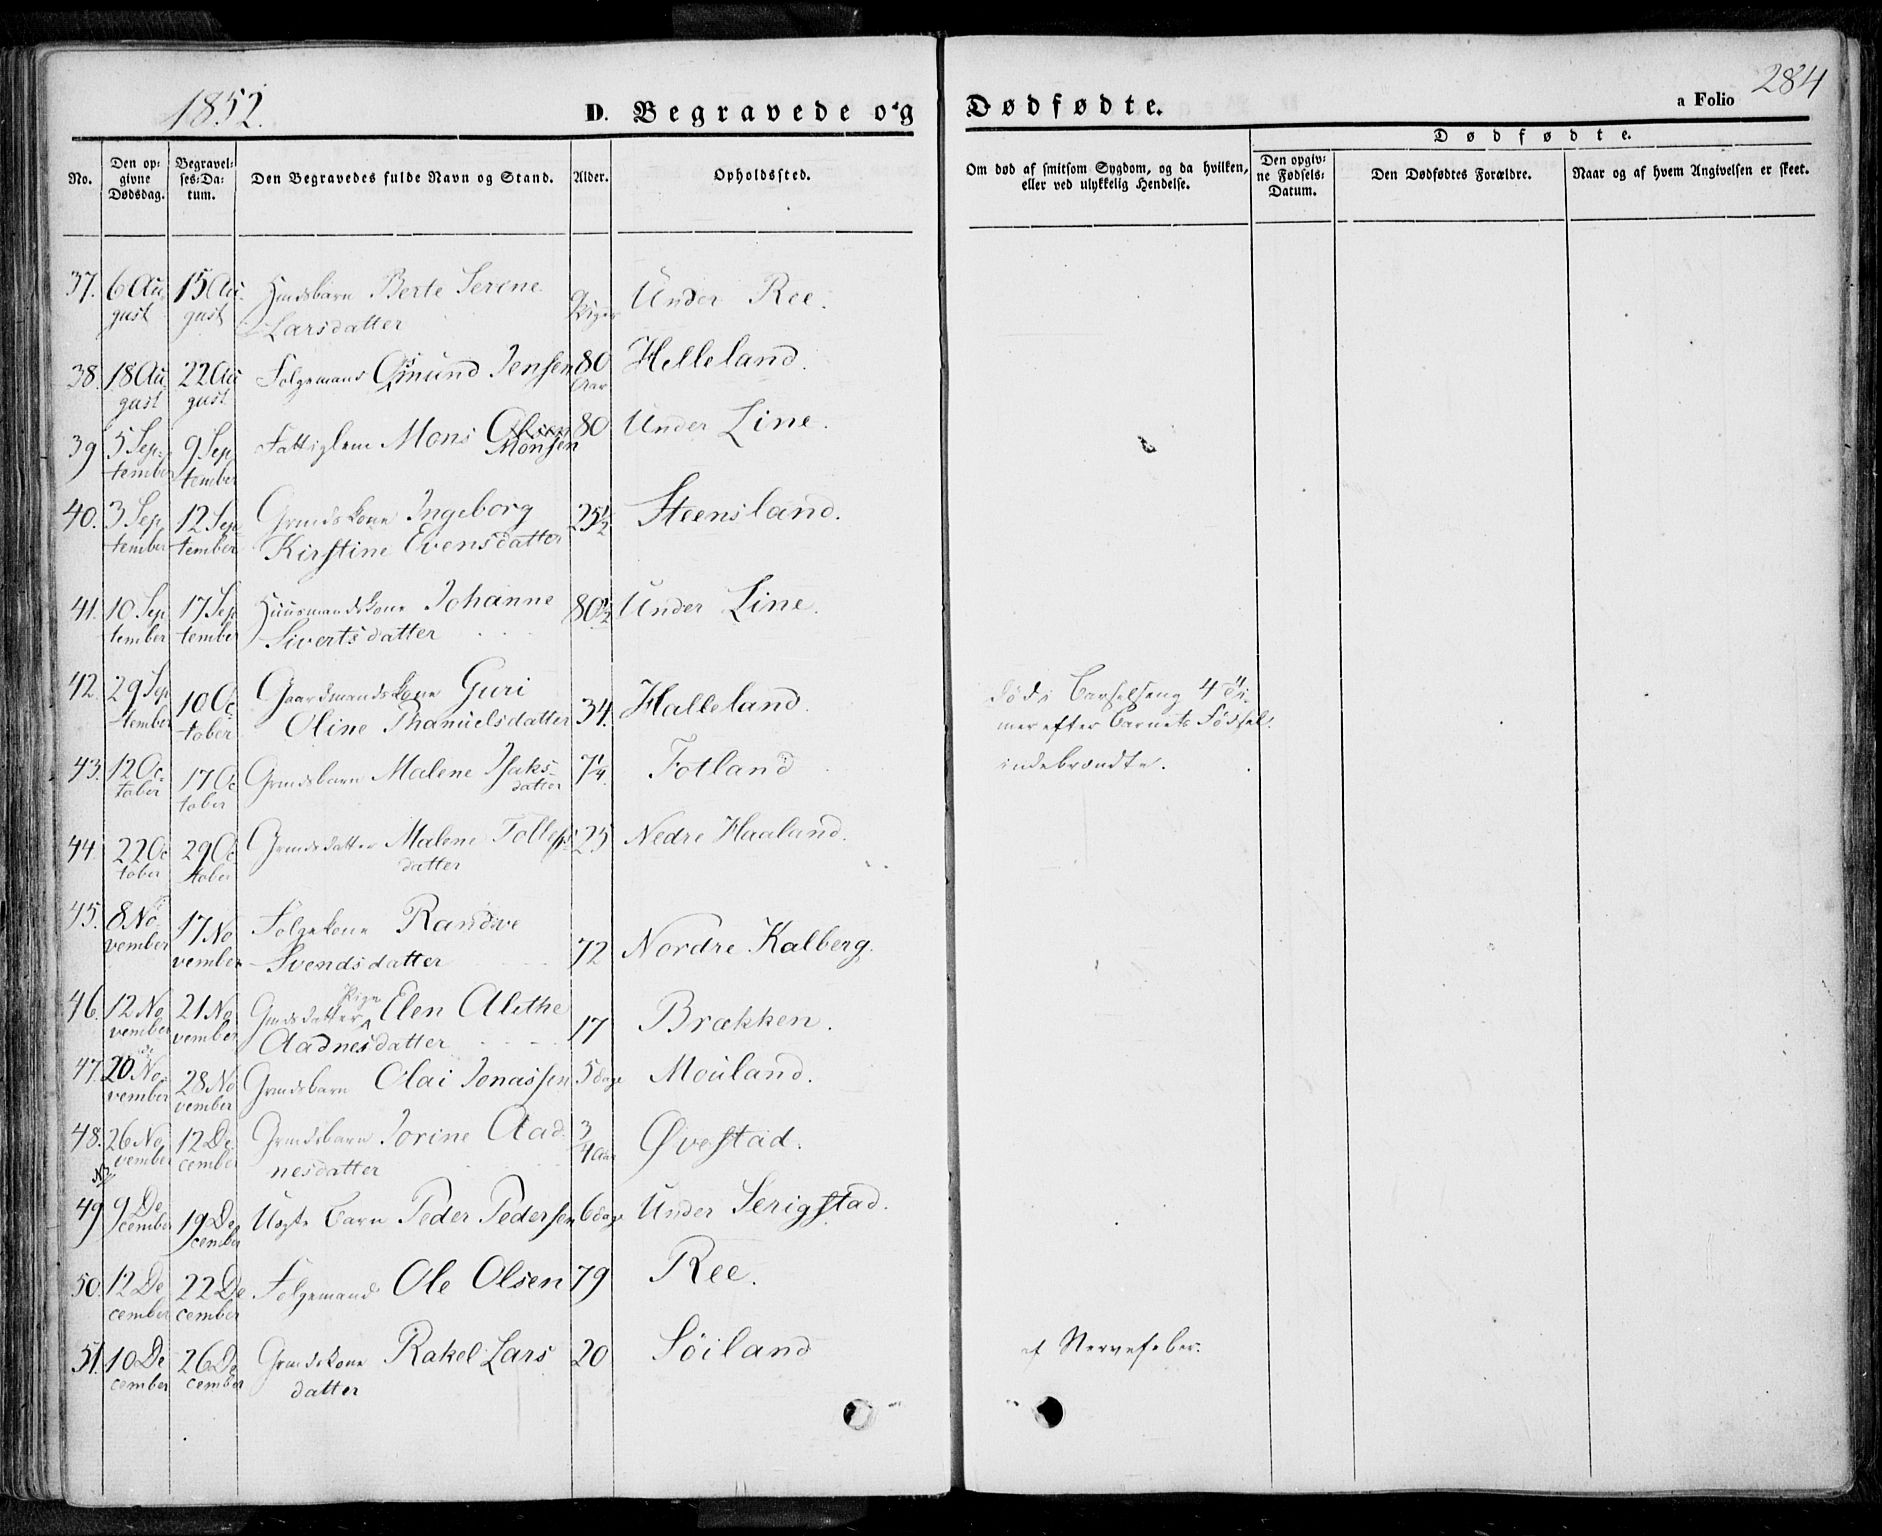 1852.
D. Begravede og Dødfødte.
a Folio 284
No.
Den opgivne Dødsdag.
Begravelses-Datum.
Den Begravedes fulde Navn og Stand.
Alder.
Opholdssted.
Om død af smitsom Sygdom, og da hvilken, eller ved ulykkelig Hendelse.
Dødfødte.
Den opgivne Fødsels-Datum.
Den Dødfødtes Forældre.
Naar og af hvem Angivelsen er skeet.
37. 6 August 15 August Berte Serine Larsdatter Under Ree.
38. 18 August 22 August Folgemand Osmund Jensen 80 Aar Helleland.
39 5 September 9 September Fattiglem Mons Olsen Monsen 80 Under Line.
40. 3 September 12 September Grmdskone Ingeborg Kirstine Evensdatter 25 1/2 Steensland.
41. 10 September 17 September Huusmandskone Johanne Sivertsdatter 80 1/2 Under Line.
42. 29 September 10 October Gaardmandskone Guri Oline Thamuelsdatter 34. Halleland. død i Barselseng 4 Timer efter Barnets Fødsel.
43. 12 October 17 October Grmdsbarn Malene Isaksdatter 7 1/4. Fotland indebrændte.
44. 22 October 29 October Grmdsdatter Malene Tollefsdatter 25 Nedre Haaland.
45. 8 November 17 November Folgekone Randve Svendsdatter 72 Nordre Kalberg.
46. 12 November 21 November Gmdsdatter Pige Elen Alethe Aadnesdatter 17 Brækken.
47. 20 November 28 November Grmdsbarn Olai Jonassen 5 dage Mouland.
48. 26 November 12 December Grmdsbarn Jorine Aadnesdatter 3/4 Aar Øvestad.
49 9 December 19 December Uægte Barn Peder Pedersen 6 dage Under Serigstad.
50. 12 December 22 December Folgemand Ole Olsen 79 Ree.
51. 10 December 26 December Grmdskone Rakel Larsdatter 20 Søiland af Nervefeber.